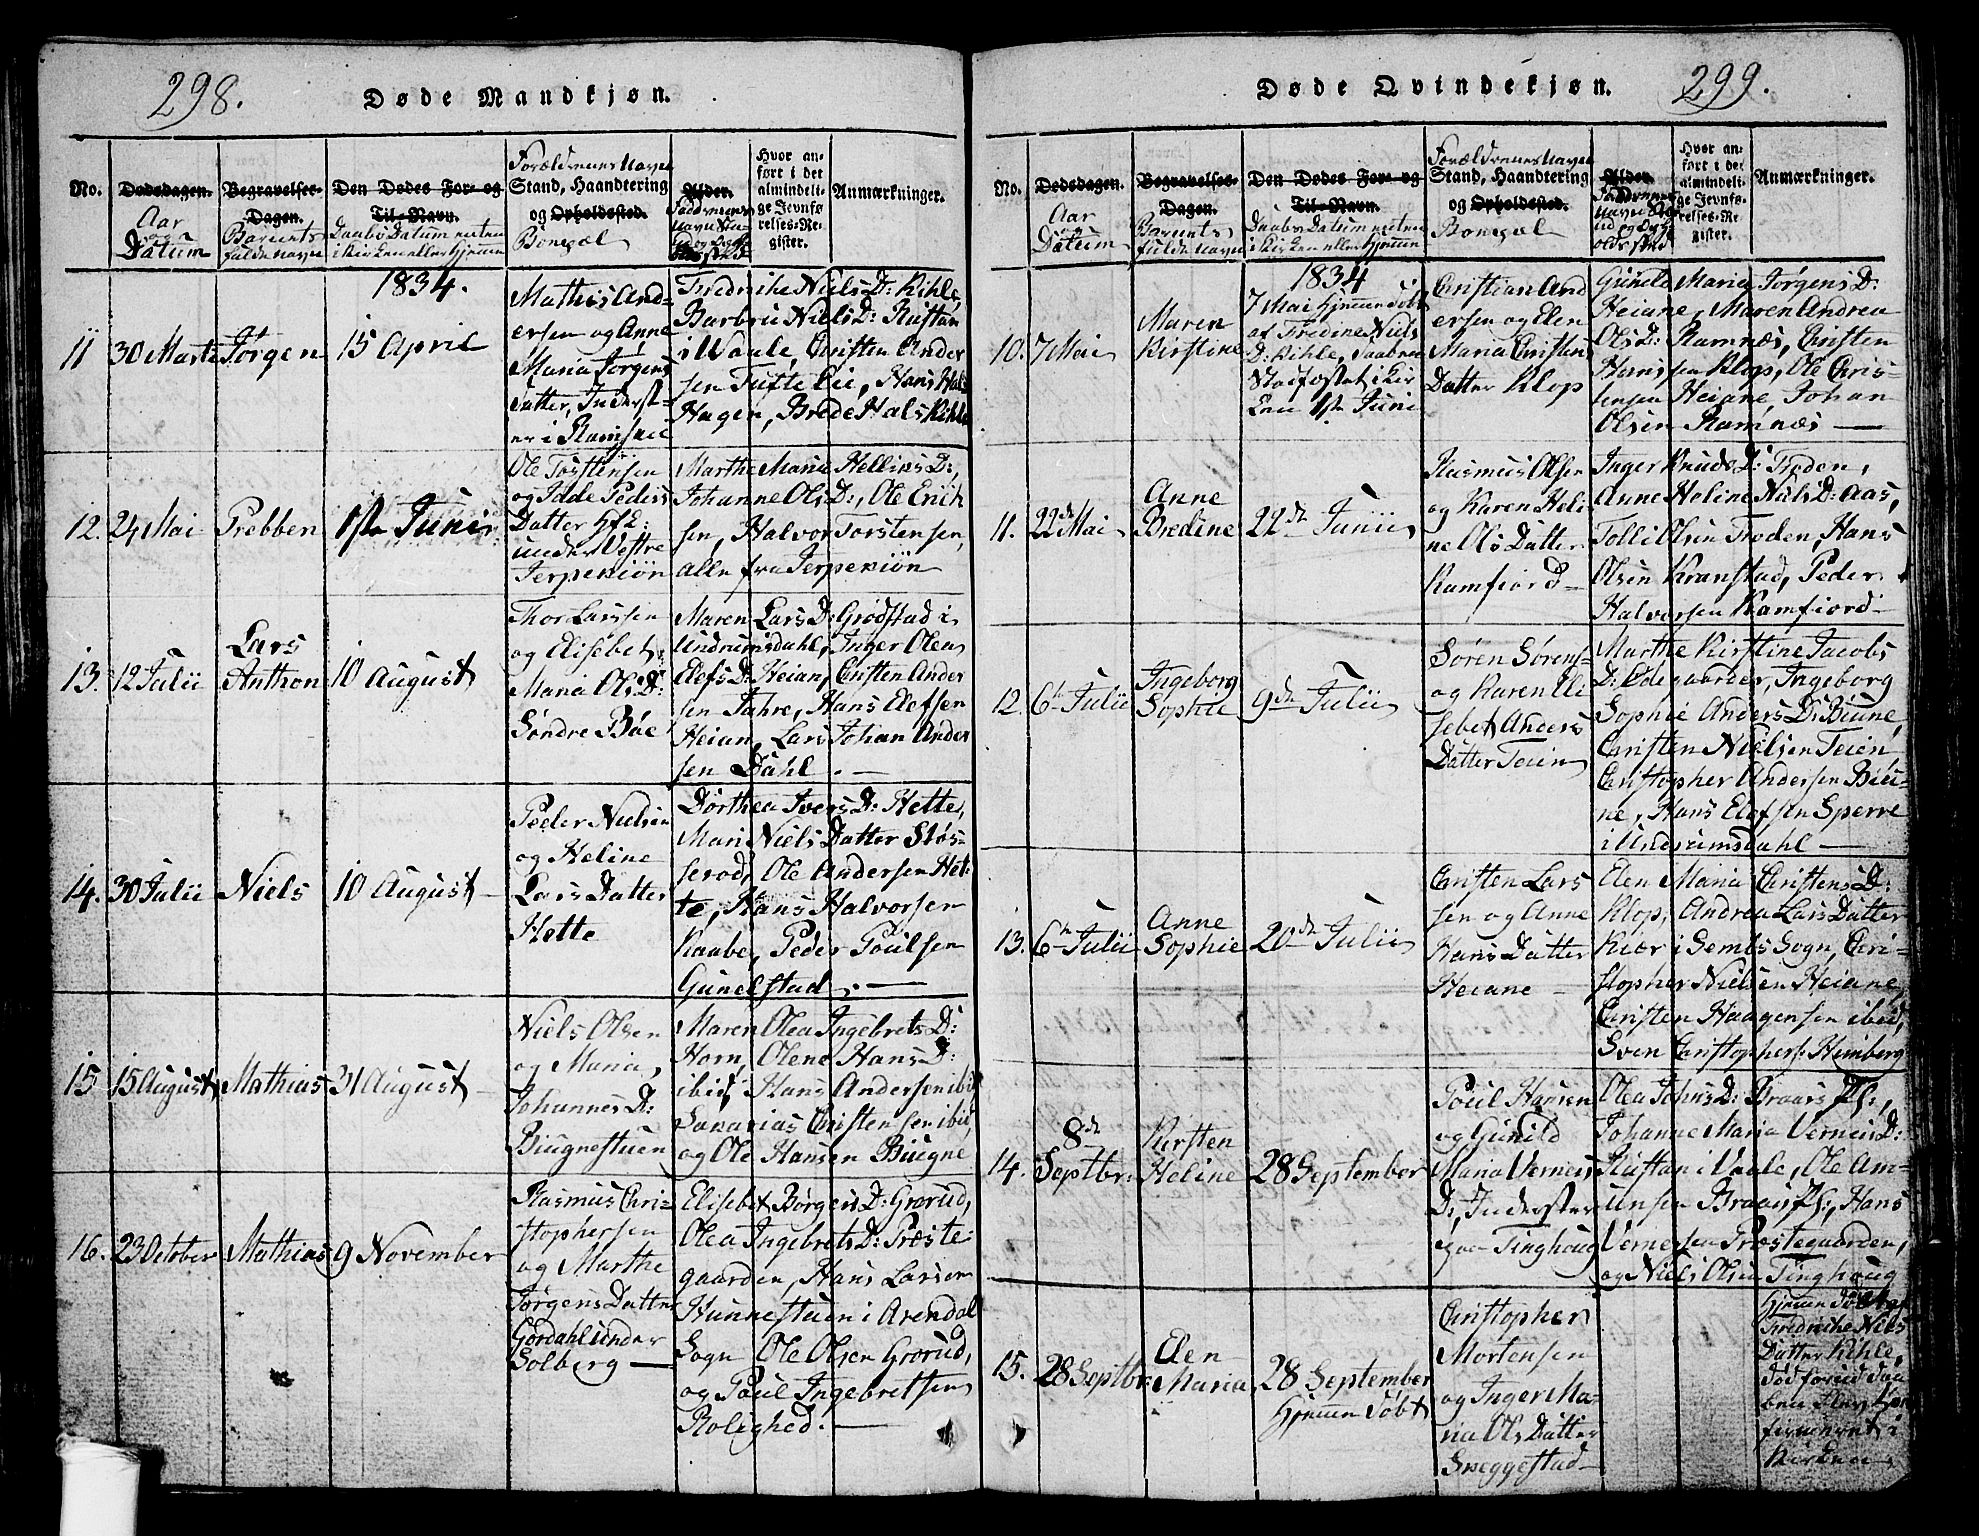 298.
Døde Mandkjøn.
No.
Dødsdagen.
Aar
og
Datum
Begravelses-
Dagen.
Barnets
fulde navn
Den Dødes For- og
Til-Navn.
Daabs Datum enten
i Kirken eller hjemme
Forældrenes Navne
Stand, Haandtering
og Opholdssted.
Bopæl
Alder.
Faddernes
navne
Hvor an-
ført i det
almindeli-
ge Jevnfø
relses-Re-
gister.
Anmærkninger.
1834.
11
30 Marts
Jørgen
15 April
Mathis And-
ersen og Anne
Maria Jørgens
Datter, Inderst-
er i Ramsaae
Fredrike Niels D: Kihle,
Barbru Niels D: Rustan
i Vaale, Christen Ander
sen Tufte Eie, Hans Hals
Hagen, Brede Hals Kihle
12.
24 Mai
Prebben
1ste Junii
Ole Torstensen
og Idde Peders
Datter
under Vestre
Jerpekiøn
Marthe Maria Hellins D:,
Johanne Ols D:, Ole Erich
sen, Halvor Torstensen,
alle fra Jerpekiøn
13.
12 Julii
Lars
Anthon
10 August
Thor Larssen
og Elisebet
Maria Ols D:
Søndre Bøe
Maren Lars D: Grødstad i
Undrumsdahl, Inger Olea
Elefs D: Heian, Cristen Ander
sen Jahre, Hans Elefsen
Heian, Lars Johan Ander
sen Dahl. —
14.
30 Julii
Niels
10 August
Peder Nielsen
og Heline
Lars Datter
Hette
Dorthea Ivers D: Hette,
Mari Niels Datter Sløs-
serød, Ole Andersen Het-
te, Hans Halvorsen
Raabe, Peder Poulsen
Gunelstad. —
15
15 August
Mathias
31 August
Niels Olsen
og Maria
Johannes D:
Biugnestuen
Maren Olea Ingebrets D:
Horn, Olene Hans D:
ibid, Hans Andersen ibid
Sakarias Christensen ibid,
og Ole Hansen Biugne
16.
23 October
Mathias
9 November
Rasmus Chris-
stophersen
og Marthe
Jørgens Datter
Gordahl under
Solberg —
Elisebet Børgers D: Grørud,
Olea Ingebrets D: Præste-
gaarden, Hans Larsen
Hunnestuen i Arendal
Sogn Ole Olsen Grorud,
og Poul Ingebretsen
Rolighed. —
299.
Døde Qvindekjøn.
No.
Dødsdagen.
Aar
og
Datum
Begravelses-
Dagen.
Barnets
fulde navn
Den Dødes For- og
Til-Navn.
Daabs Datum enten
i Kirken eller hjemme
Forældrenes Navne
Stand, Haandtering
og Opholdssted.
Bopæl
Alder.
Faddernes
navne
Hvor an-
ført i det
almindeli-
ge Jevnfø-
relses-Re-
gister.
Anmærkninger.
1834
10.
7 Mai
Maren
Kirstine
7 Mai hjemme døbt
af Fredine Niels
D: Kihle, Daaben
Stadfæstet i Kir
ken 1ste Juni
Christian And
ersen og Elen
Maria Christens
Datter Klop
Gunild Maria Jørgens D:
Heiane, Maren Andrea
Ols D: Ramnæs, Christen
Hanssen Klop, Ole Chris-
tensen Heiane, Johan
Olsen Ramnæs —
11.
22de Mai
Anne
Bredine
22de Junii
Rasmus Olsen
og Karen Heli
ne Ols Datter
Ramfiord —
Inger Knuds D: Froden,
Anne Heline Niels D: Aas,
Tolli Olsen Froden, Hans
Olsen Kranstad, Peder
Halvorsen Ramfiord
12.
6te Julii
Ingeborg
Sophie
9de Julii
Søren Sørens-
og Karen Eli
sebet Anders
Datter Teien
Marthe Kirstine Jacobs
D: Ødegaarden, Ingeborg
Sophie Anders D: Biune,
Christen Nielsen Teien
Christopher Andersen Biu-
ne, Hans Elefsen Sperre
i Undrumsdahl —
13.
6te Julii
Anne
Sophie
20de Julii
Christen Lars
sen og Anne
Hans Datter
Heiane —
Elen Maria Christens D:
Klop, Andrea Lars Datter
Kiær i Sembs Sogn, Chri-
stopher Nielsen Heiane,
Christen Haagensen ibid,
Sven Christophers: Himberg
14.
8de
Septbr:
Kirsten
Heline
28 September
Poul Hansen
og Gunild
Maria Verners
D:, Inderster
paa Tinghoug
Olea Johns D: Braars Pl:,
Johanne Maria Verners D:
Rustan i Vaale, Ole Am-
unsen Braars Pl:, Hans
Vernersen Præstegaarden,
og Niels Olsen Tinghoug
15.
28 Septbr:
Elen
Maria
28 September
hjemme døbt
Christopher
Mortensen
og Inger Ma-
ria Ols Datter
Sneggestad
hjemme døbt af
Fredrike Niels
Datter Kihle,
død forend Daa
ben blev kon
firmeret i
Kirken